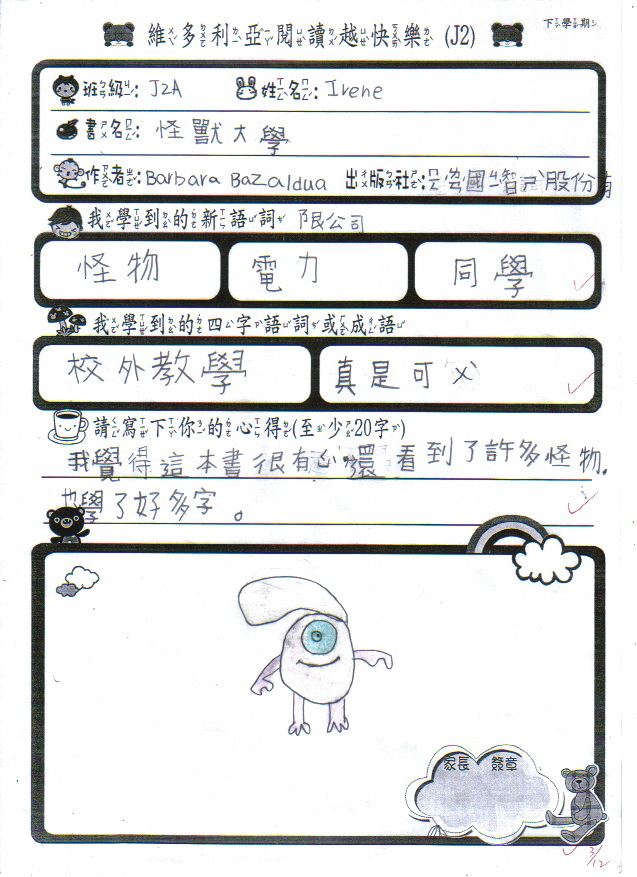 下學期
維多利亞閱讀越快樂 (J2)
班級: J2A 姓名: Irene
書名: 怪獸大學
作者: Barbara Bazaldua 出版社: 國 智 股份有
我學到的新語詞 限公司
怪物 電力 同學
我學到的四字語詞或成語
校外教學 真是可ㄨˋ
請寫下你的心得(至少20字)
我覺得這本書很有 還看到了許多怪物.
也學了好多字。
家長 簽章
3/12